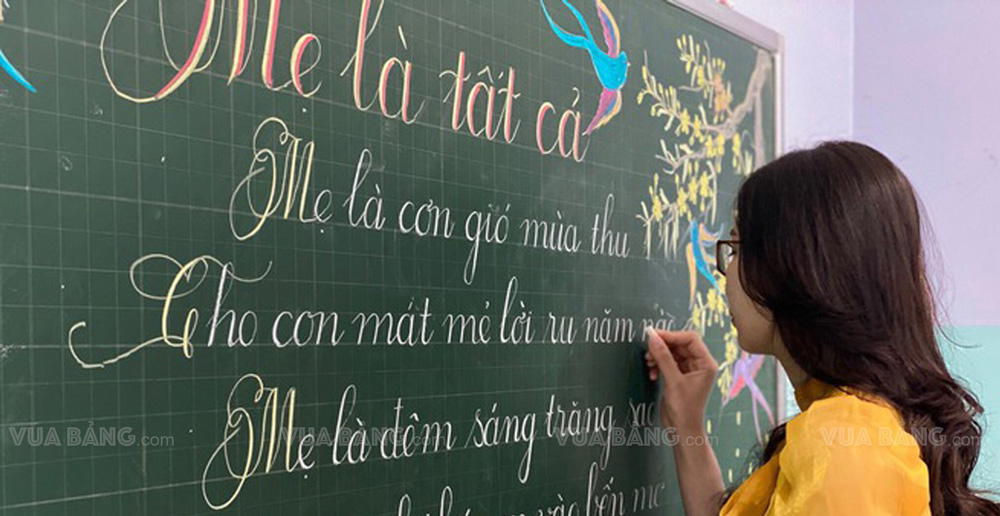 Mẹ là tất cả
Mẹ là cơn gió mùa thu
Cho con mát mẻ lời ru năm nào
Mẹ là đêm sáng trăng
vào bến mơ
VUA BẢNG.com VUA BẢNG.com VUA BẢNG.com VUA BẢNG.com